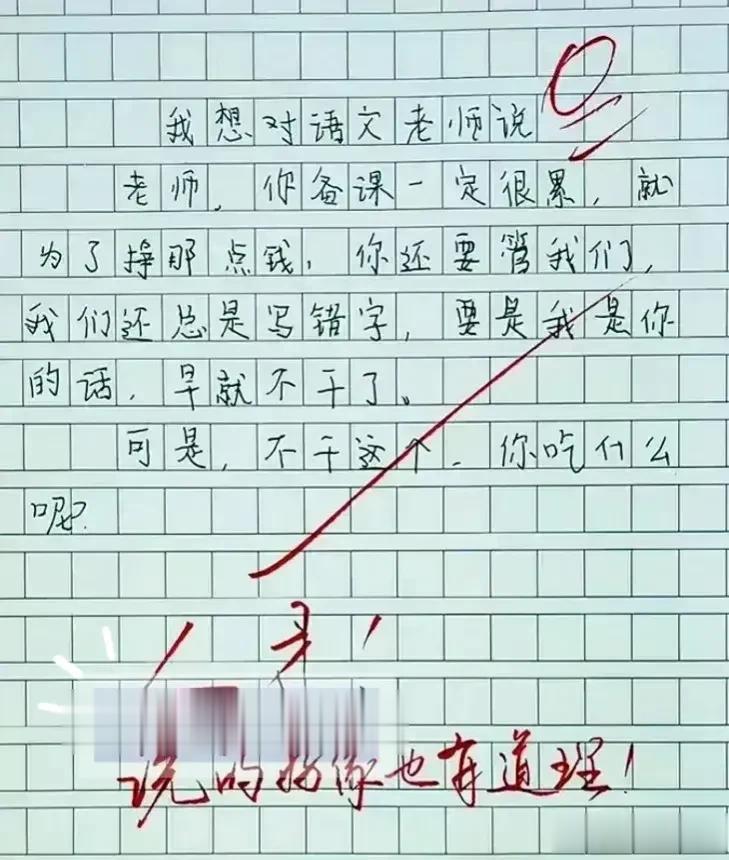 我想对语文老师说
老师，你备课一定很累，就
为了挣那点钱，你还要管我们，
我们还总是写错字，要是我是你
的话，早就不干了。
可是，不干这个，你吃什么
呢？
0
说的好像也有道理！